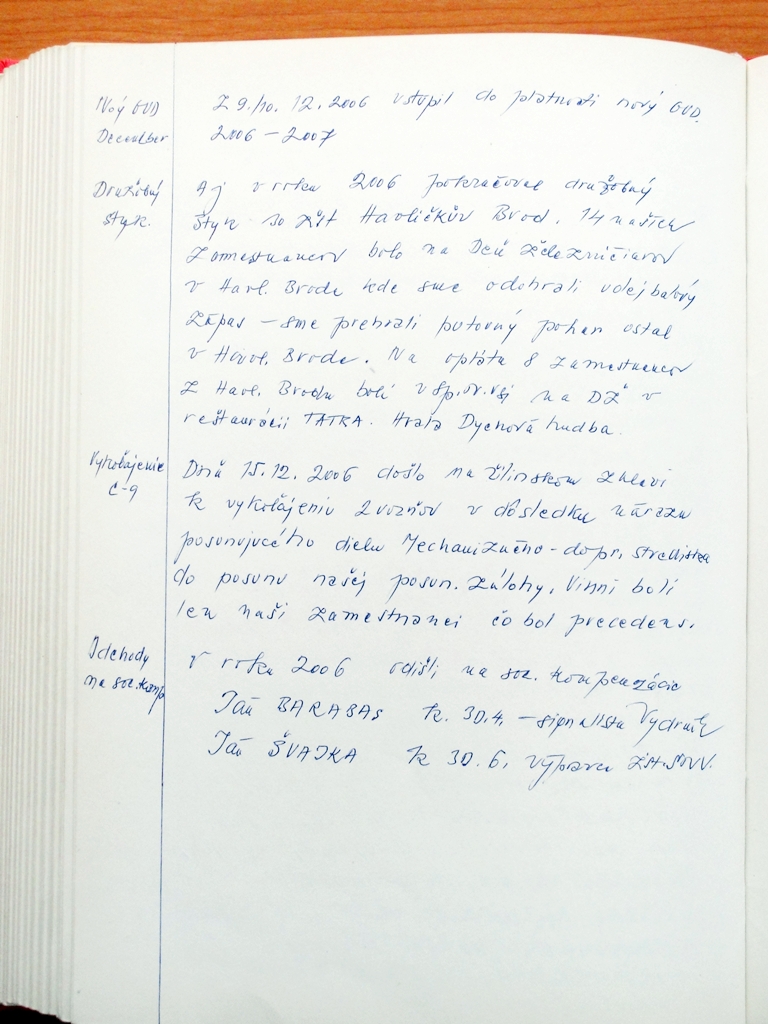 Nový GVD
December
Z 9./10. 12. 2006 vstúpil do platnosti nový GVD.
2006 – 2007
Družobný
styk.
Aj v roku 2006 pokračoval družobný
styk so žst Havlíčkův Brod. 14 našich
zamestnancov bolo na Deň železničiarov
v Havl. Brode kde sme odohrali volejbalový
zápas – sme prehrali putovný pohár ostal
v Havl. Brode. Na oplátu 8 zamestnancov
z Havl. Brodu boli v Sp. N. Vsi na DŽ v
reštaurácii TATRA. Hrala Dychová hudba.
Vykoľajenie
C-9
Dňa 15.12. 2006 došlo na žilinskom zhlaví
k vykoľajeniu 2 vozňov v dôsledku nárazu
posunujúceho dielu Mechanizačno-dopr. strediska
do posunu našej posun. zálohy. Vinní boli
len naši zamestnanci čo bol precedens.
Odchody
na soc. komp.
V roku 2006 odišli na soc. kompenzácie
Ján BARABAS k 30.4. – signalista Vydrník
Ján ŠVAJKA k 30.6. výpravca